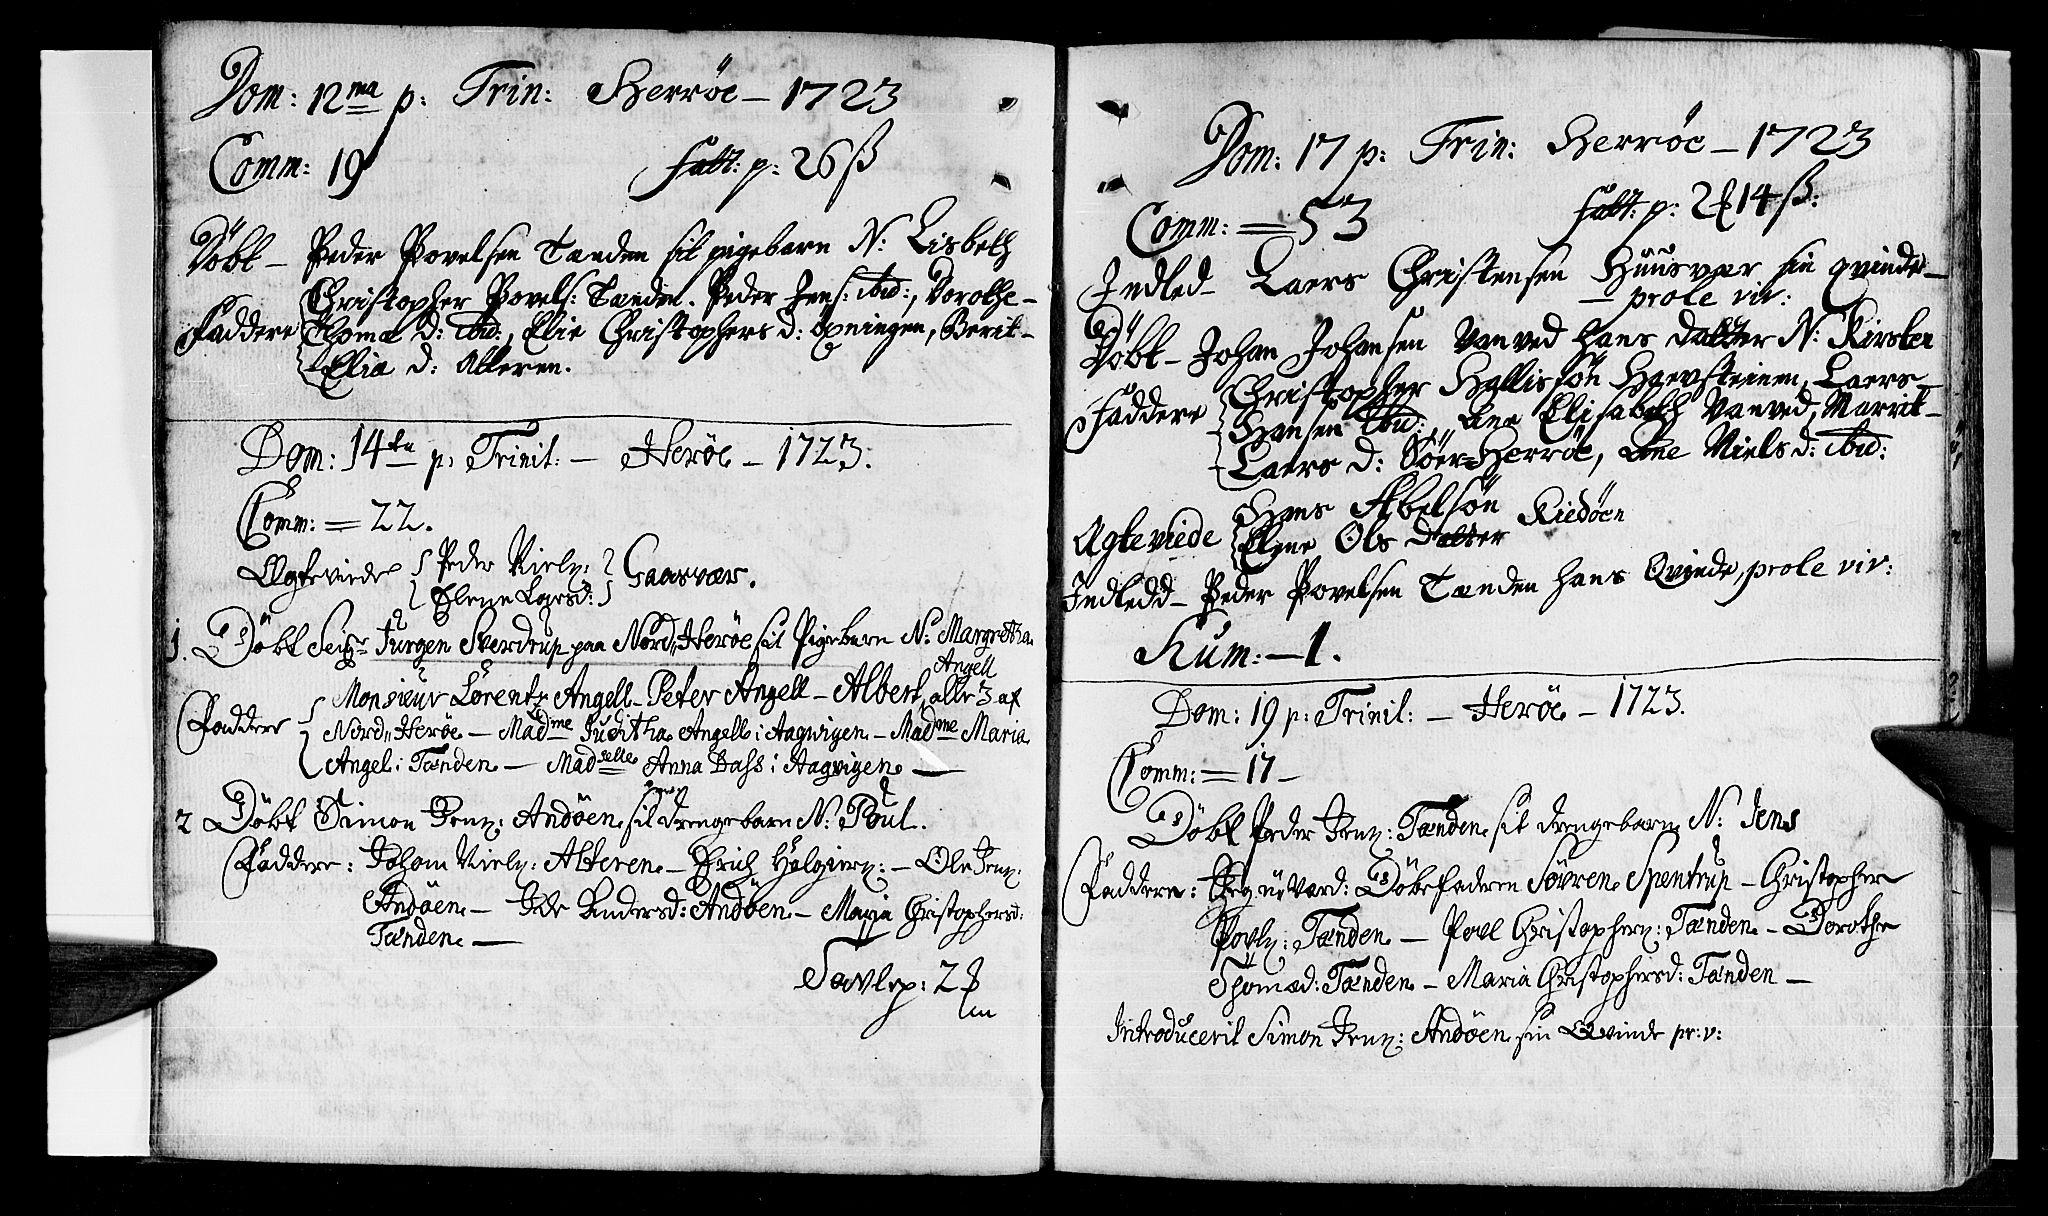 Dom: 12ma p: Trin: Herröe – 1723
Comm: 19 Fatt: p: 26 ß
Döbt – Peder Povelsen Tanden sit pigebarn N: Lisbeth
Christopher Povels: Tanden. Peder Jens: ibid:, Dorothe-
Faddere Thomæ d: ibid:, Elie Christophers d: Öpningen, Berit-
Eliæ d: Alteren.
Dom: 14ta p: Trinit: – Heröe – 1723.
Comm: = 22.
Ægteviede Peder Nielz: Gaasvær.
Elene Larsd:
1. Döbt Seigr Jürgen Sverdrup paa Nord Heröe sit Pigebarn N: Margretha
Angell
Monsieur Lorentz Angell – Peter Angell – Albert, alle 3 af
Faddere Nord Heröe – Madme Juditha Angell i Aagvigen – Madme Maria
Angel i Tænden – Madselle Anna Dass i Aagvigen –
2 Döbt Simon Jenz: Andöen sit drengebarn N: Poul.
Faddere: Johan Nielz: Alteren – Erich Holgierz: – Ole Jenz:
Andöen – Ide Andersd: Andöen – Marja Christophersd:
Tænden –
Tavlep: 2
Dom: 17 p: Trin: Herröe – 1723
Comm: = 53 Fatt: p: 2 14 ß:
Indled – Laers Christensen Huusvær sin qvinde –
– prole vir:
Döbt – Johan Johansen Vanved hans datter N: Kirsten
Christopher Hallissön Haevsteinen, Laers –
Faddere Hansen ibid:, Ane Elisabeth Vanved, Marrit –
Laers d: Söer=Herröe, Ane Niels d: ibid:
Hans Abelsön Riedöen
Ægteviede Elene Ols datter
Indledd – Peder Povelsen Tænden hans Qvinde, prole vir:
Kum: – 1.
Dom: 19 p: Trinit: – Heröe – 1723.
Comm: = 17 –
Döbt Peder Jenz: Tænden sit drengebarn N: Jens
Faddere: Döbefaderen Sövren Spentrup – Christopher
Povlz: Tænden – Povl Christopherz: Tænden – Dorothe
Thomæd: Tænden – Maria Christophersd: Tænden –
Introducerit Simon Jenz: Andöen sin Qvinde pr: v: